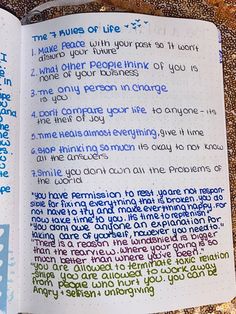 The 7 Rules of Life
1. Make Peace with your past so it won't
disturb your future
2. What other People think of you is
none of your business
3. The only person in charge
is you
4. Dont compare your life to anyone - its
the theif of joy
5. Time Heals almost everything, give it time
6. Stop thinking so much its okay to not know
all the answers
7. Smile you dont own all the Problems of
the world
"You have permission to rest. you are not respon-
sible for fixing everything that is broken. you do
not have to try and make everything happy. For
now take time to you. its time to replenish"
"You dont owe anyone an explanation for
taking care of yourself, however you need to."
"There is a reason the windshield is bigger
than the rearview. Where your going is so
much better than where you've been."
"you are allowed to terminate toxic relation
ships you are allowed to walk away
from people who hurt you. you can be
angry + selfish + unforgiving